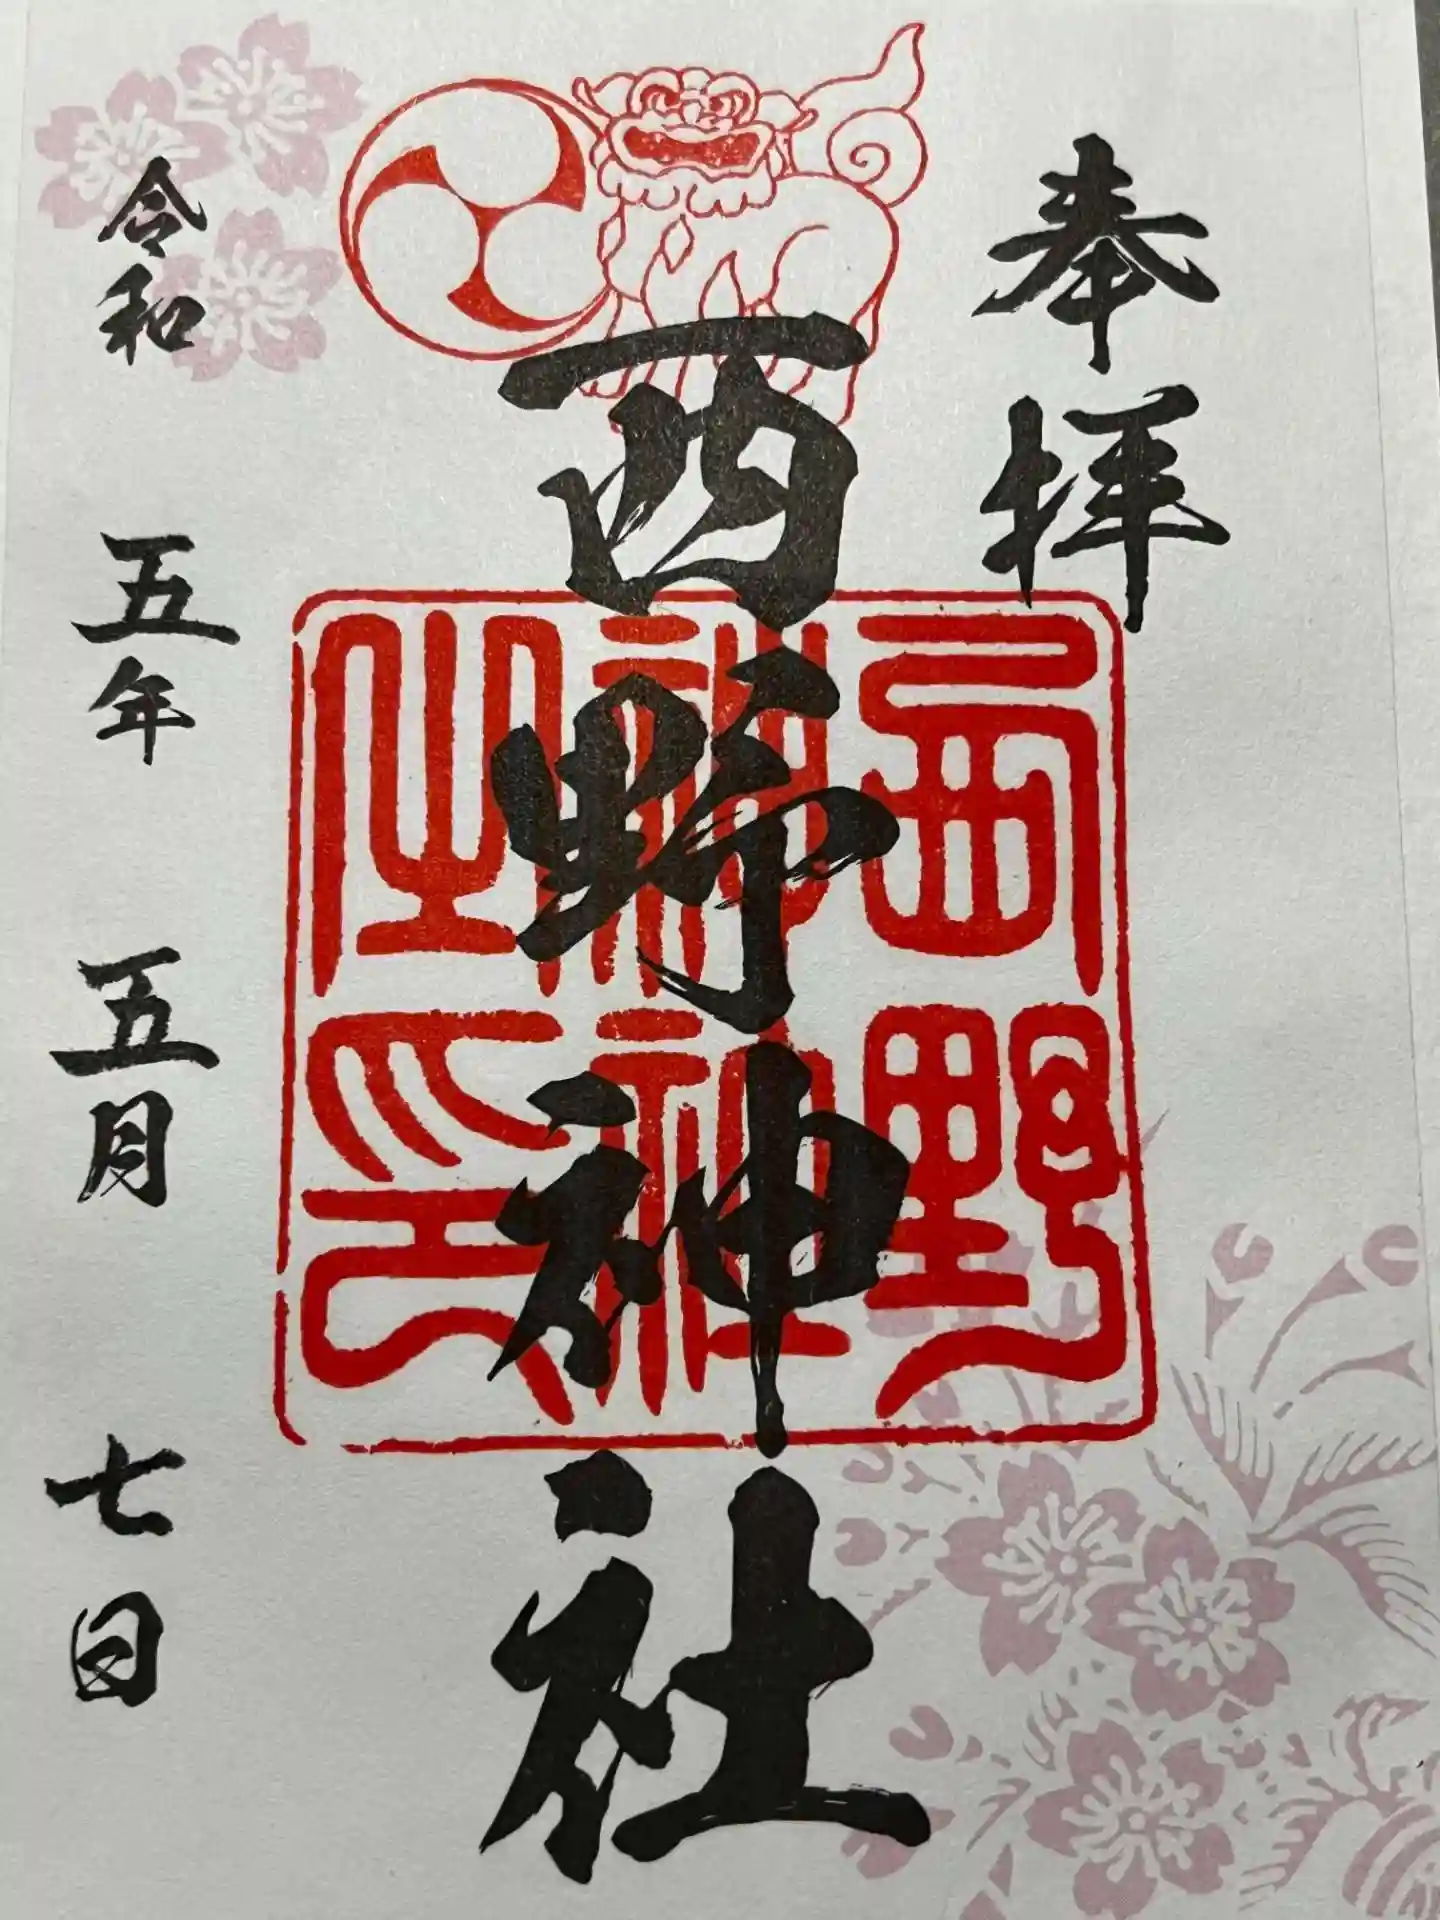 奉拝
西野神社
西野神社之印
令和五年五月七日